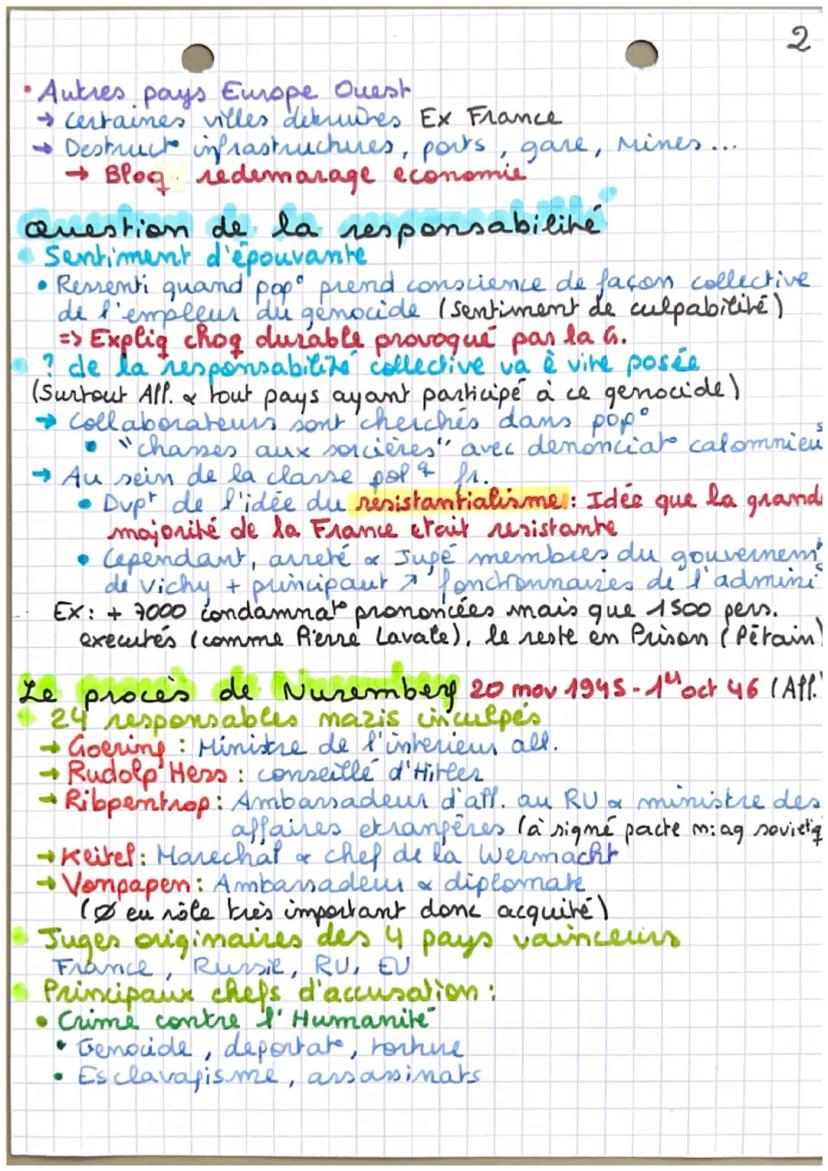 2
• Autres pays Europe Ouest
→ certaines villes detruites Ex France
→ Destruct° infrastructures, ports, gare, Mines...
→ Bloq. redemarage economie
Question de la responsabilité
• Sentiment d'épouvante
• Ressenti quand pop° prend conscience de façon collective
de l'empleur du génocide (Sentiment de culpabilité)
=> Expliq choq durable provoqué par la G.
• ? de la responsabilité collective va ê vite posée
(Surtout All. & tout pays ayant participé à ce genocide)
→ Collaborateurs sont cherchés dans pop°
• "chasses aux sorcières" avec denonciat° calomnieus
→ Au sein de la classe pol fr.
• Dvpt de l'idée du resistantialisme : Idée que la grand
majorité de la France etait resistante
• Cependant, arreté & Jugé membres du gouvernem
de Vichy + principaut fonctionnaires de l'admini
Ex : + 7000 condamnat° prononcées mais que 1500 pers.
executés (comme Pierre Lavale), le reste en Prison (Pétain)
Le procès de Nuremberg 20 nov 1945 - 1er oct 46 (All.
• 24 responsables nazis inculpés
→ Goering : Ministre de l'interieur all.
→ Rudolp Hess : conseillé d'Hitler
→ Ribpentrop : Ambassadeur d'all. au RU & ministre des
affaires etrangères (à signé pacte m: ag sovietiq
→ Keitel : Marechal & chef de la Wermacht
→ Vonpapen : Ambassadeur & diplomate
(Ø eu rôle très important donc acquité)
• Juges originaires des 4 pays vainceurs
France, Russie, RU, EU
• Principaux chefs d'accusation :
• Crime contre l'Humanité
• Genocide, deportat°, torture
• Esclavagisme, assassinats